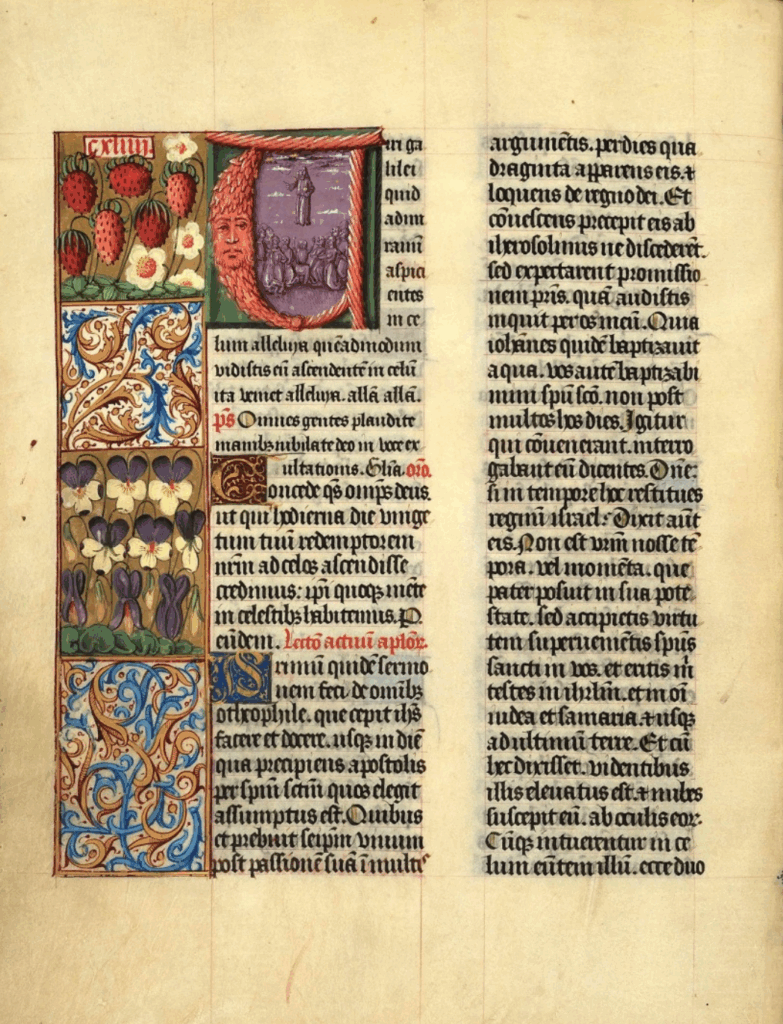 cxliiii
Viri ga
lilei
quid
admi
ramī
aspici
entes
in ce
lum alleluya quēadmodum
vidistis eū ascendentē in celū
ita veniet alleluya. allā allā.
pˢ Omnes gentes plaudite
manibꝫ iubilate deo in voce ex
ultationis. Glīa. orō.
Concede qˢ omīps deus.
ut qui hodierna die vnige
nitum tuū redemptorem
nr̄m ad celos ascendisse
credimus: ipī quoqꝫ mēte
in celestibꝫ habitemus. P
eūdem. Lectō actuū aplōꝝ.
Primū quidē sermo
nem feci de omībꝫ
o theophile. que cepit ihs̄
facere et docere. usqꝫ in diē
qua precipiens apostolis
per spm̄ sctm̄ quos elegit
assumptus est. Quibus
et prebuit seipm̄ viuum
post passionē suā ī multis
argumētis. per dies qua
draginta apparens eis. ⁊
loquens de regno dei. Et
cōuescens precepit eis ab
iherosolimis ne discederēt.
sed expectarent promissio
nem pr̄is. quā audistis
inquit per os meū. Quia
iohānes quidē baptizauit
aqua. vos autē baptizabi
mini spū scō. non post
multos hos dies. Igitur
qui cōuenerant. interro
gabant eū dicentes. Dn̄e:
si in tempore hoc restitues
regnū israel? Dixit aūt
eis. Non est vr̄m nosse tē
pora. vel momēta. que
pater posuit in sua pote
state. sed accipietis virtu
tem superuenientis spūs
sancti in vos. et eritis m̄
testes in ihrlm̄. et in oī
iudea et samaria. ⁊ usqꝫ
ad ultimū terre. Et cū
hec dixisset. videntibus
illis eleuatus est. ⁊ nubes
suscepit eū. ab oculis eoꝝ.
Cūqꝫ intuerentur in ce
lum eūtem illū. ecce duo